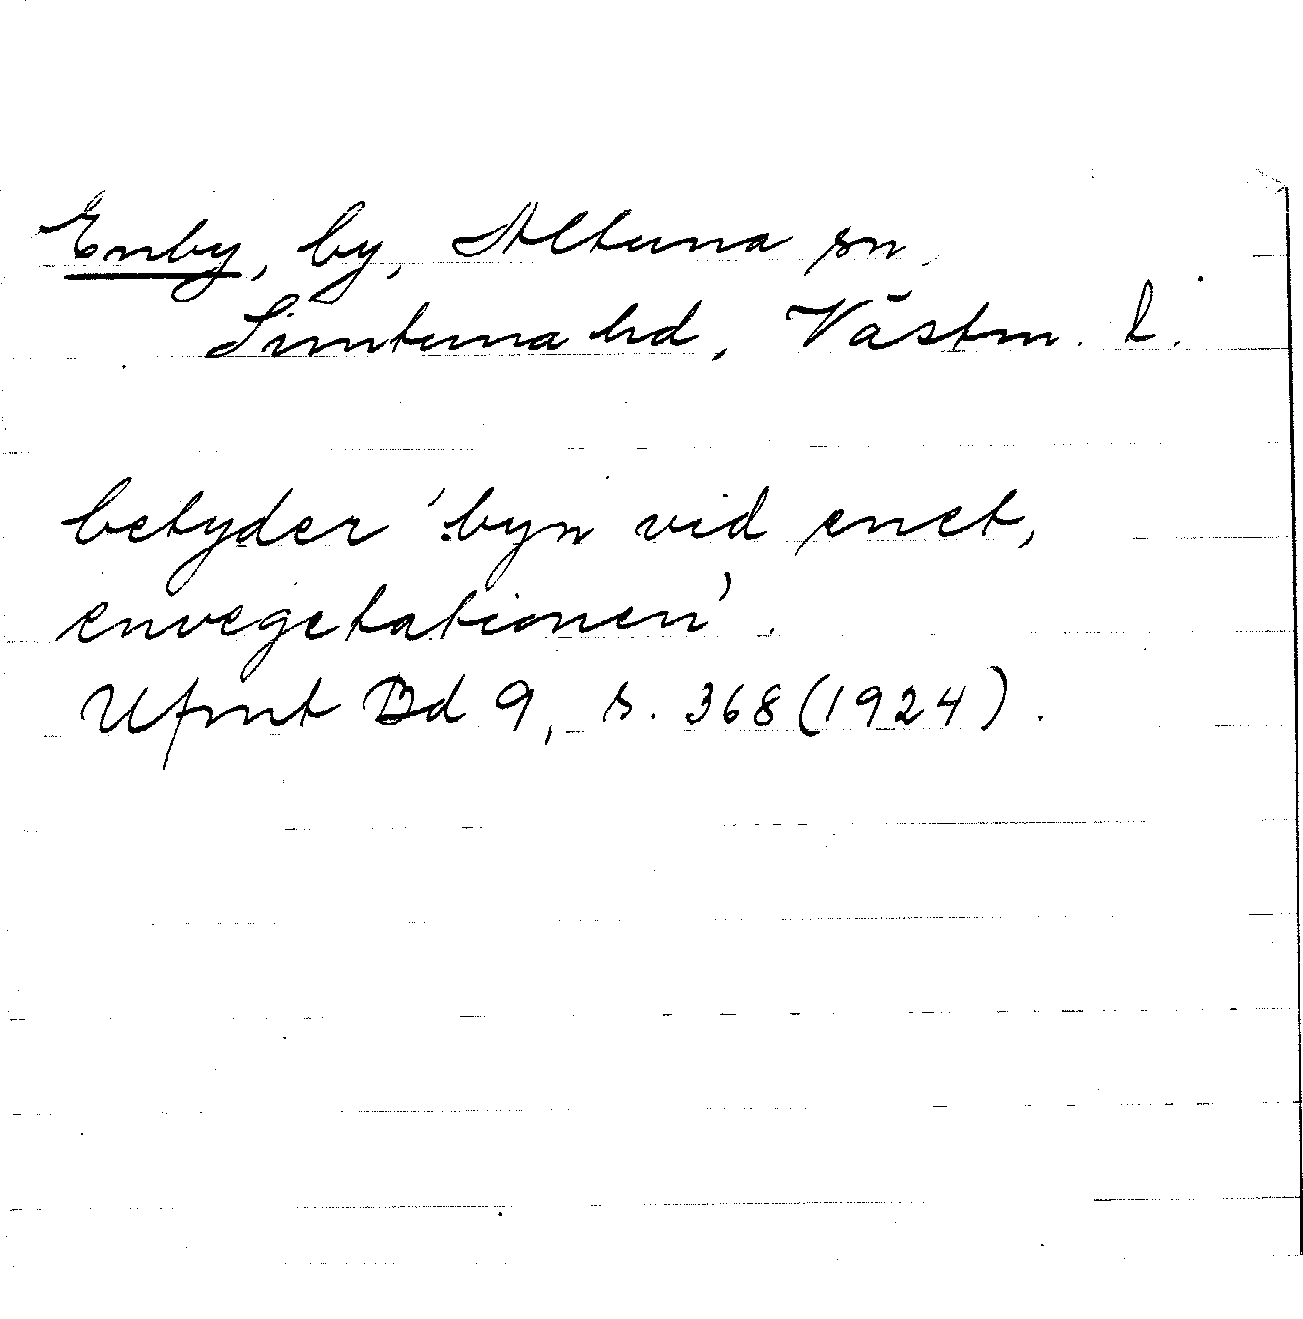 Enby, by, Altuna sn.
Simtuna hd, Västm. l.
betyder 'byn vid enet,
envegetationen'.
Ufmt Bd 9, s. 368 (1924).